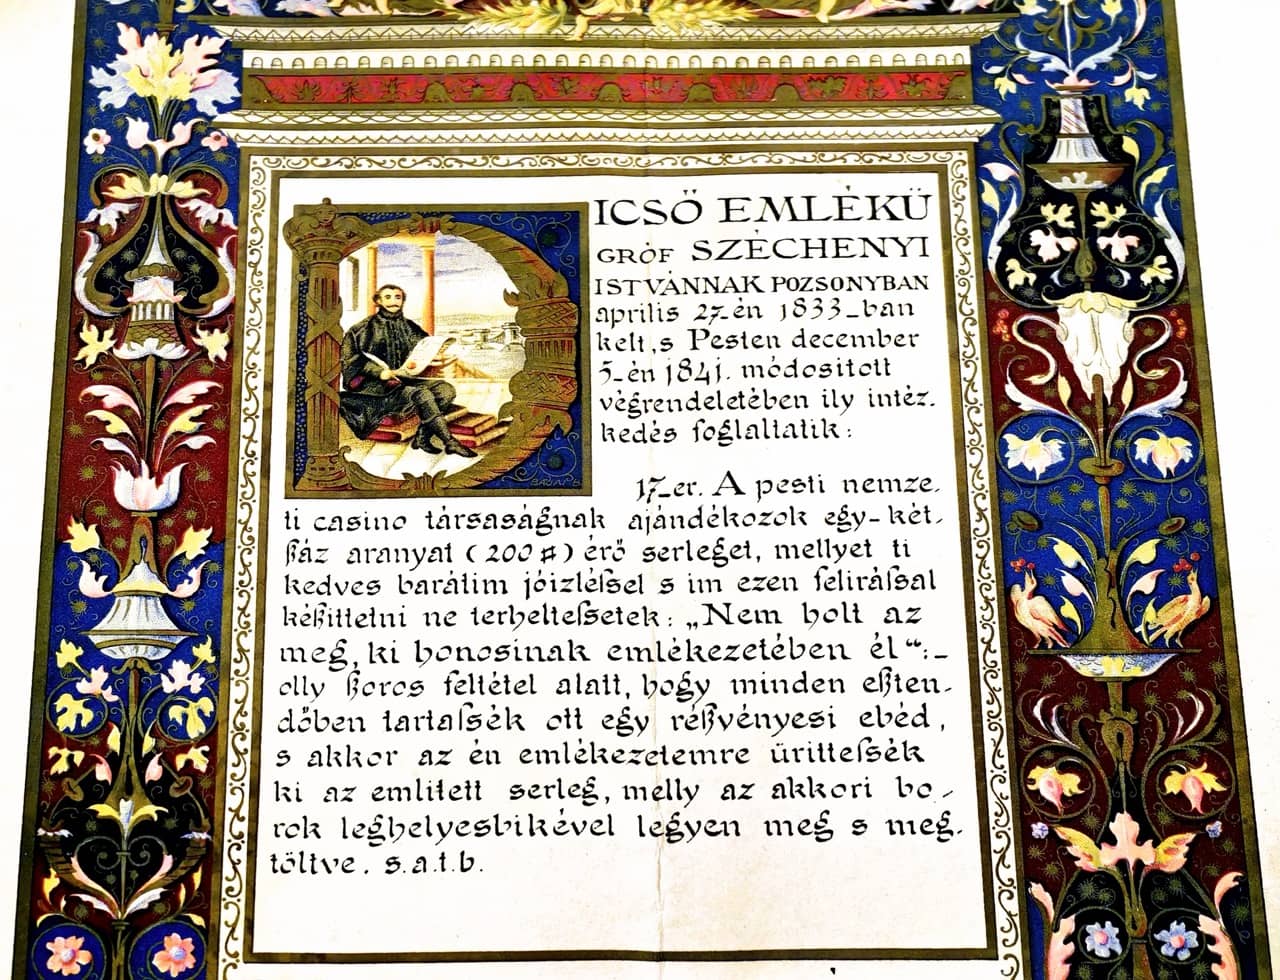 DICSŐ EMLÉKŰ
GRÓF SZÉCHENYI
ISTVÁNNAK POZSONYBAN
aprilis 27-én 1833-ban
kelt, s Pesten december
5-én 1841. módositott
végrendeletében ily intéz-
kedés foglaltatik:
17-er. A pesti nemze-
ti casino társaságnak ajándékozok egy-két-
ßáz aranyat (200 #) érő serleget, mellyet ti
kedves barátim jóizléſsel s im ezen feliráſsal
kéßittetni ne terhelteſsetek: „Nem holt az
meg, ki honosinak emlékezetében él“:-
olly ßoros feltétel alatt, hogy minden eßten-
dőben tartaſsék ott egy réßvényesi ebéd,
s akkor az én emlékezetemre üritteſsék
ki az emlitett serleg, melly az akkori bo-
rok leghelyesbikével legyen meg s meg-
töltve. s.a.t.b.